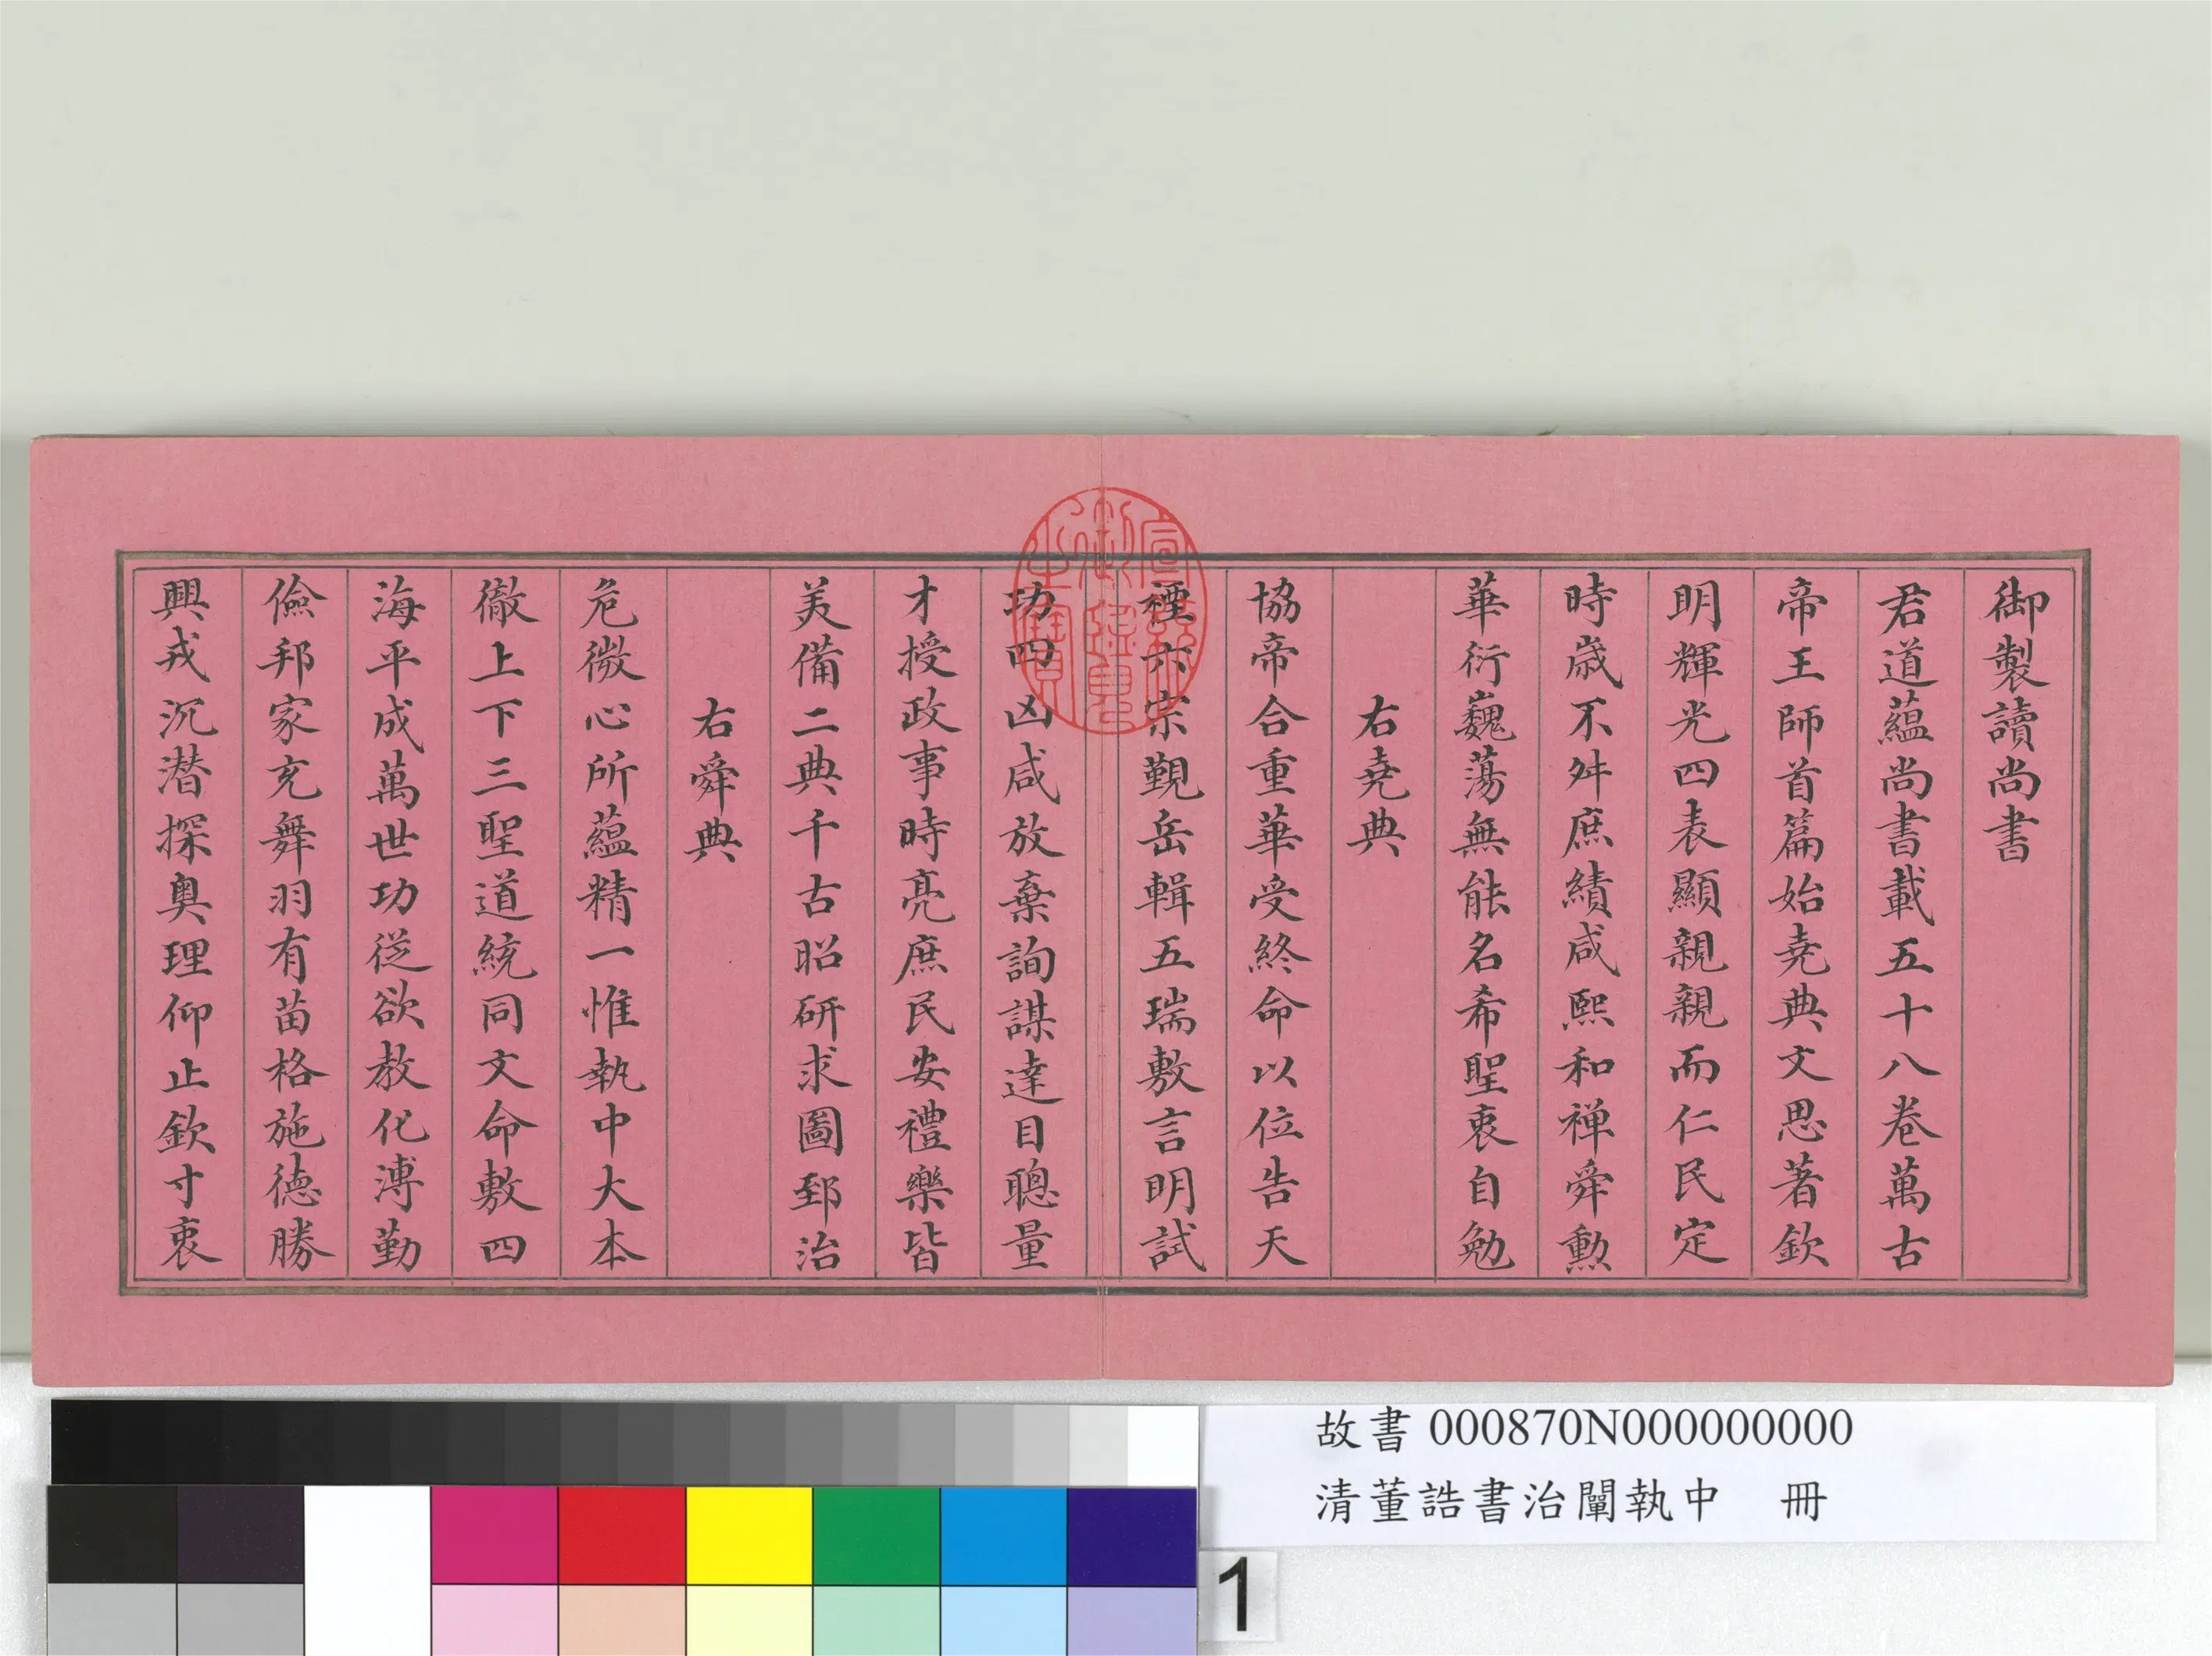 御製讀尚書
君道蘊尚書載五十八卷萬古
帝王師首篇始堯典文思著欽
明輝光四表顯親親而仁民定
時歲不舛庶績咸熙和禅舜勲
華衍巍蕩無能名希聖衷自勉
右堯典
協帝合重華受終命以位告天
禋六宗覲岳輯五瑞敷言明試
功四凶咸放棄詢謀達目聰量
才授政事時亮庶民安禮樂皆
美備二典千古昭研求圖郅治
右舜典
危微心所蘊精一惟執中大本
徹上下三聖道統同文命敷四
海平成萬世功從欲教化溥勤
儉邦家充舞羽有苗格施德勝
興戎沉潛探奧理仰止欽寸衷
宣統御覽之寶
故書 000870N000000000
清董誥書治闡執中 冊
1